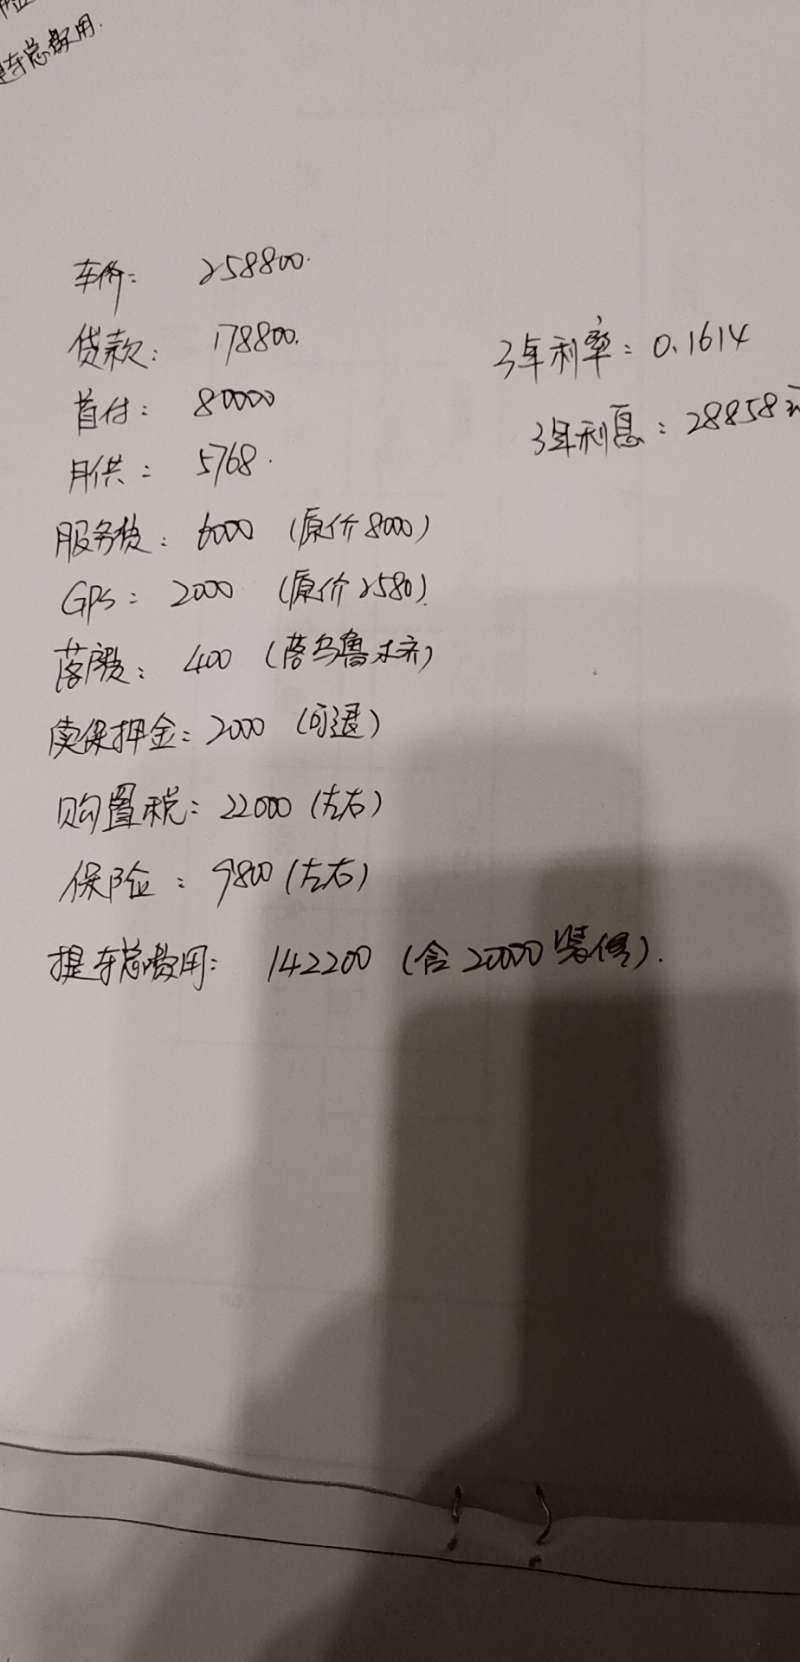 提车总费用.
车价: 258800.
贷款: 178800.
3年利率: 0.1614
首付: 80000
3年利息: 28858元
月供: 5768.
服务费: 6000 (原价8000)
GPS: 2000 (原价2580).
落户费: 400 (落乌鲁木齐)
续保押金: 2000 (可退)
购置税: 22000 (左右)
保险: 9800 (左右)
提车总费用: 142200 (含20000装修).